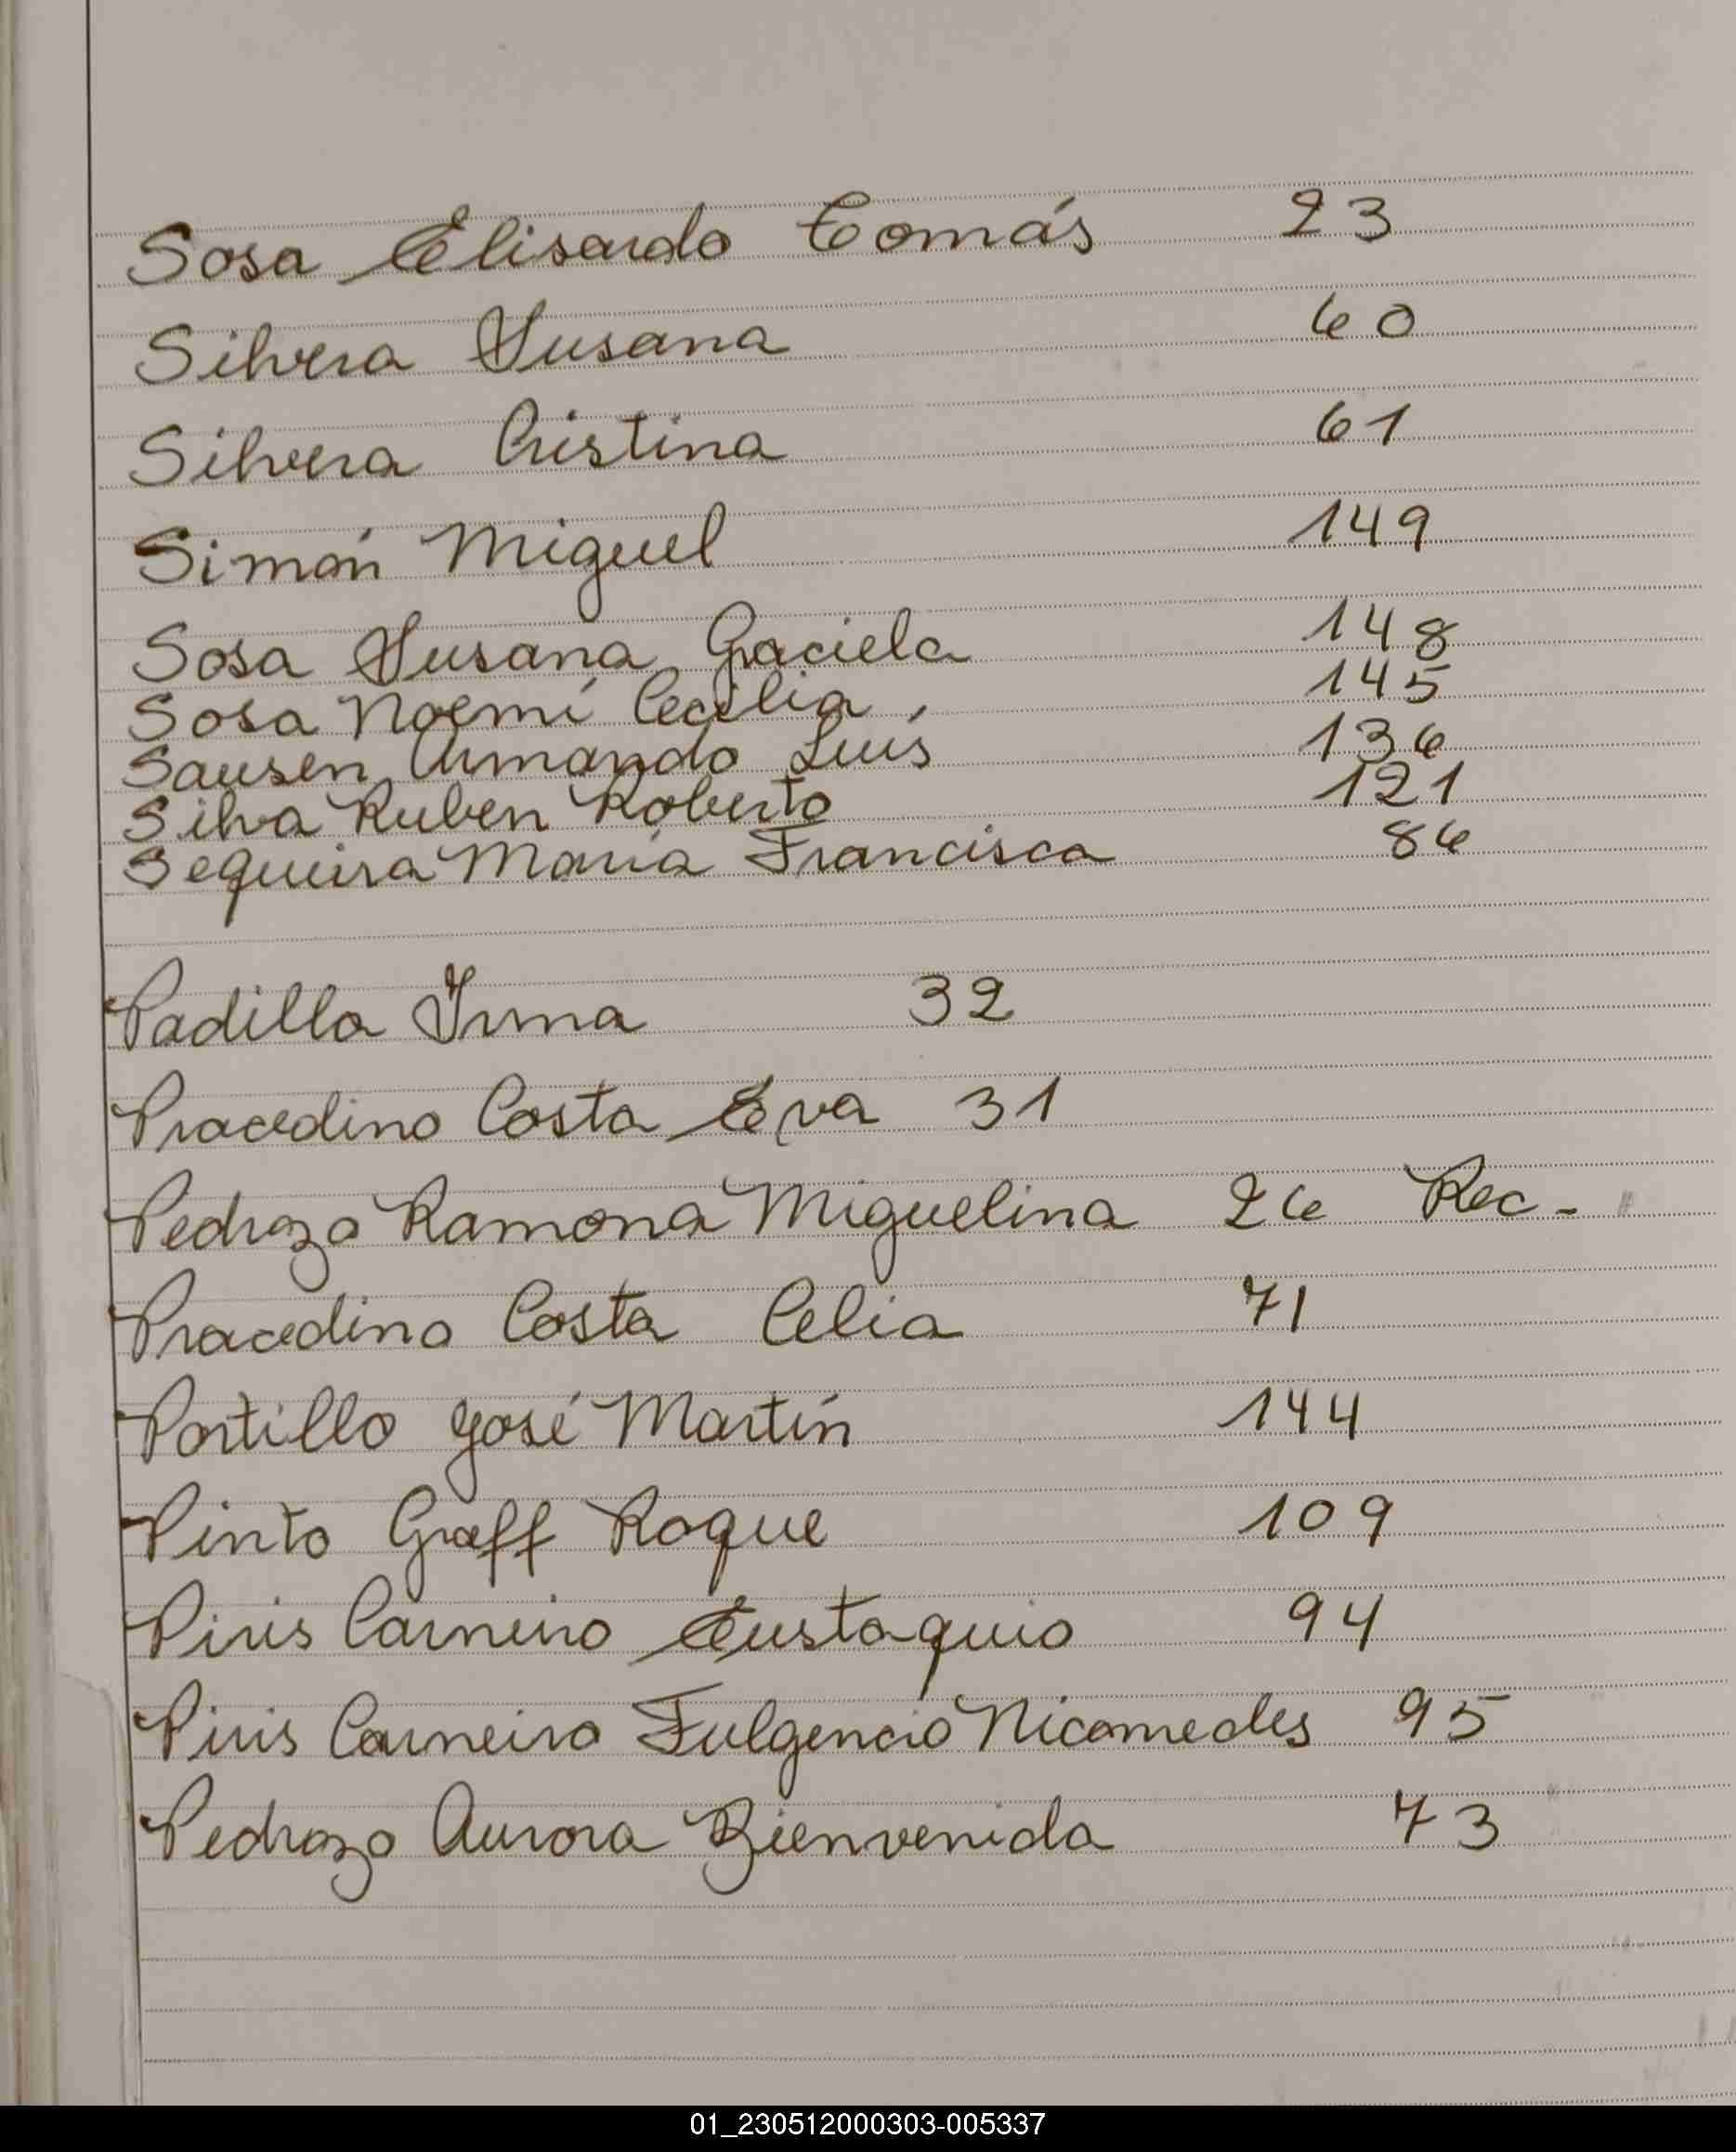 Sosa Elisardo Tomás 23
Silvera Susana 60
Silvera Cristina 61
Simón Miguel 149
Sosa Susana Graciela 148
Sosa Noemí Cecilia 145
Sausen Armando Luís 136
Silva Ruben Roberto 121
Sequeira María Francisca 86
Padilla Irma 32
Pracedino Costa Eva 31
Pedrozo Ramona Miguelina 26 Rec-
Pracedino Costa Celia 71
Portillo José Martín 144
Pinto Graff Roque 109
Piris Carneiro Eustaquio 94
Piris Carneiro Fulgencio Nicomedes 95
Pedrozo Aurora Bienvenida 73
01_230512000303-005337